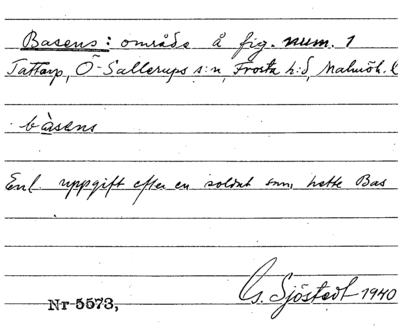 Basens: område å fig. num. 1
Tattarp, Ö-Sallerups s:n, Frosta h:d, Malmöh. l.
bàsens
Enl. uppgift efter en soldat som hette Bas
G. Sjöstedt 1940
Nr 5573,